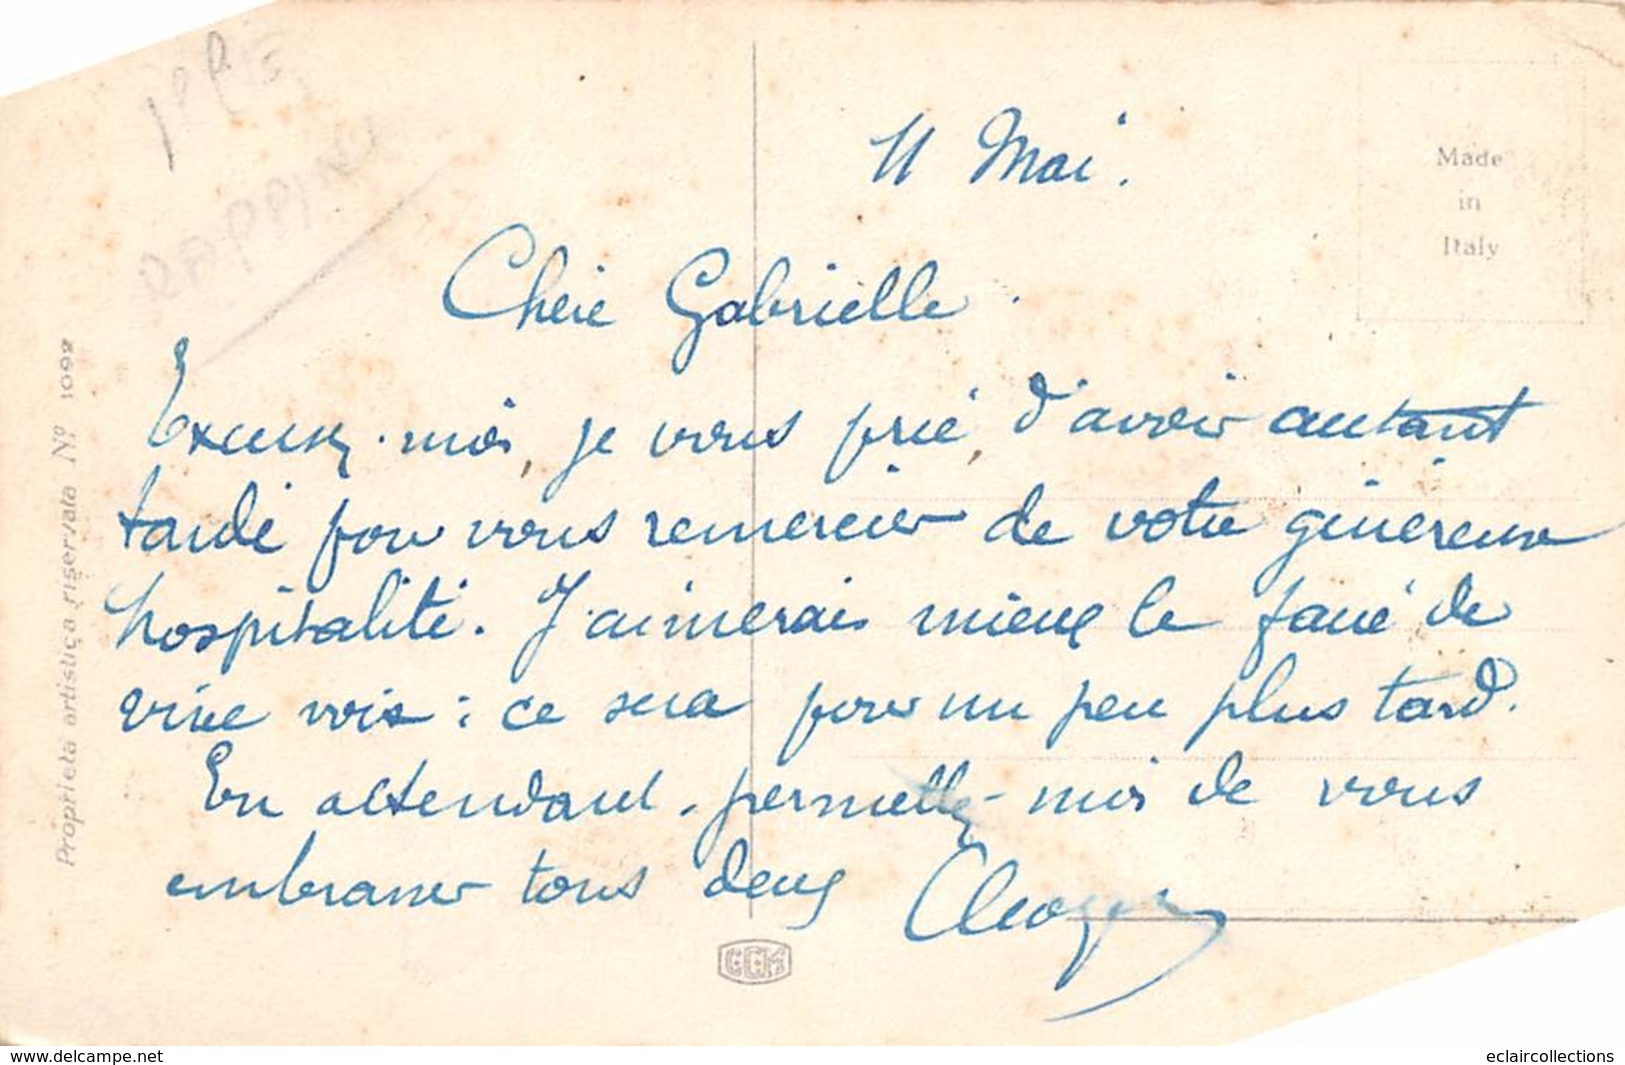 11 Mai.
Made
in
Italy
RAPPINI
Chère Gabrielle.
Excusez-moi, je vous prie, d'avoir autant
tardé pour vous remercier de votre généreuse
hospitalité. J'aimerais mieux le faire de
vive voix : ce sera pour un peu plus tard.
En attendant, permettez-moi de vous
embrasser tous deux
Proprieta artistica riservata Nº 1092
CCM
www.delcampe.net
eclaircollections